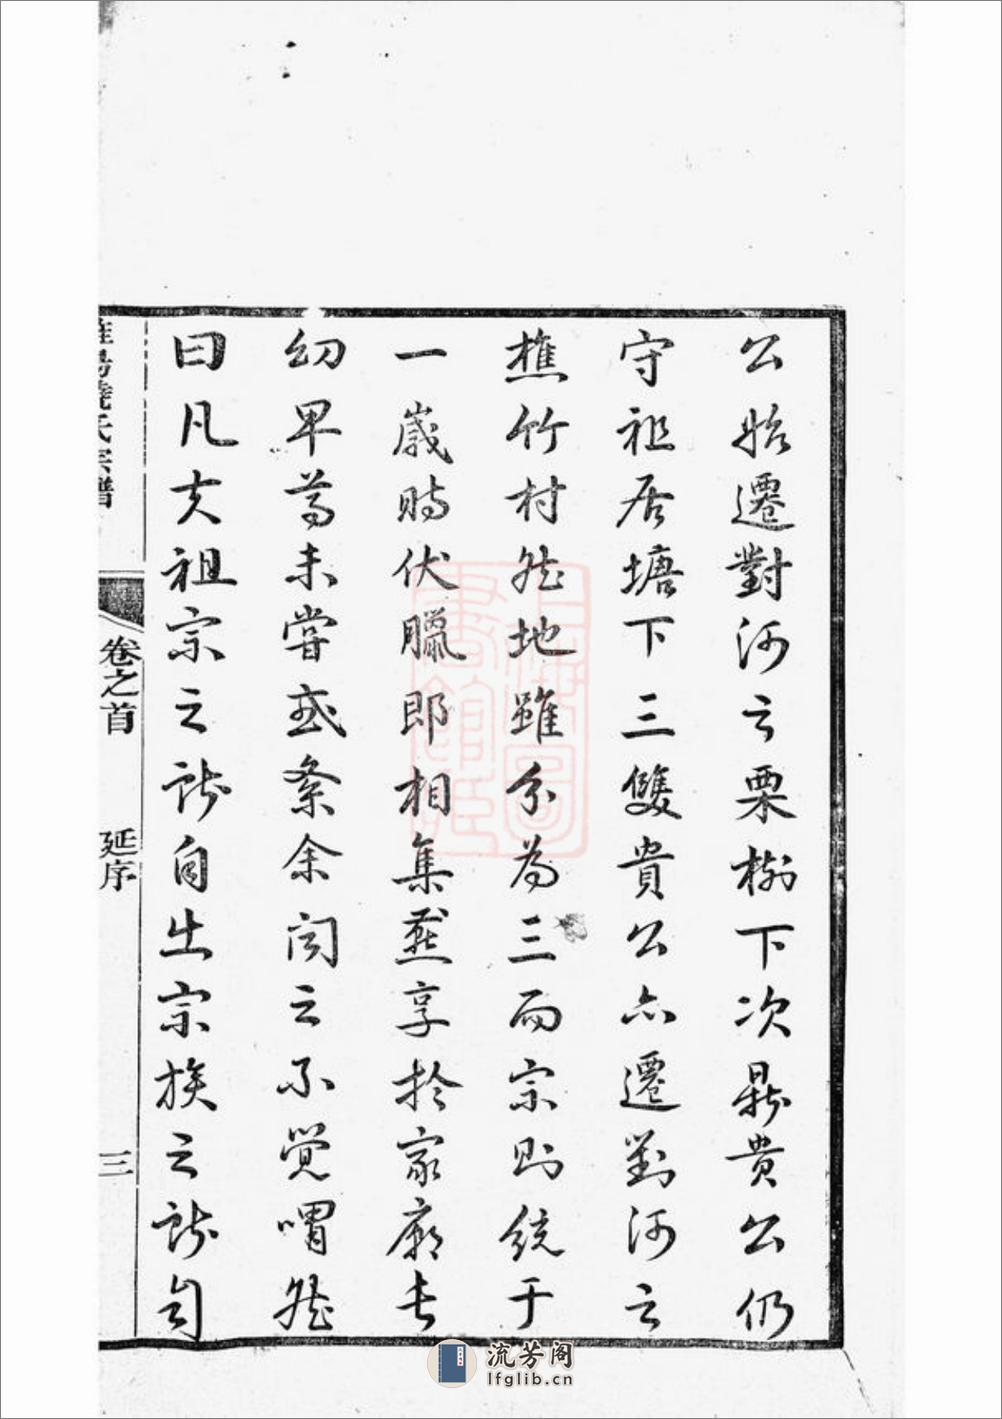 公始遷對河之栗樹下次鼎貴公仍
守祖居塘下三雙貴公亦遷對河之
樵竹村然地雖分為三而宗則統于
一歲時伏臘即相集燕享於家廟長
幼卑尊未嘗或紊余闻之不覺喟然
曰凡夫祖宗之所自出宗族之所自
卷之首
延序
三
氏宗譜
流芳阁
lfglib.cn